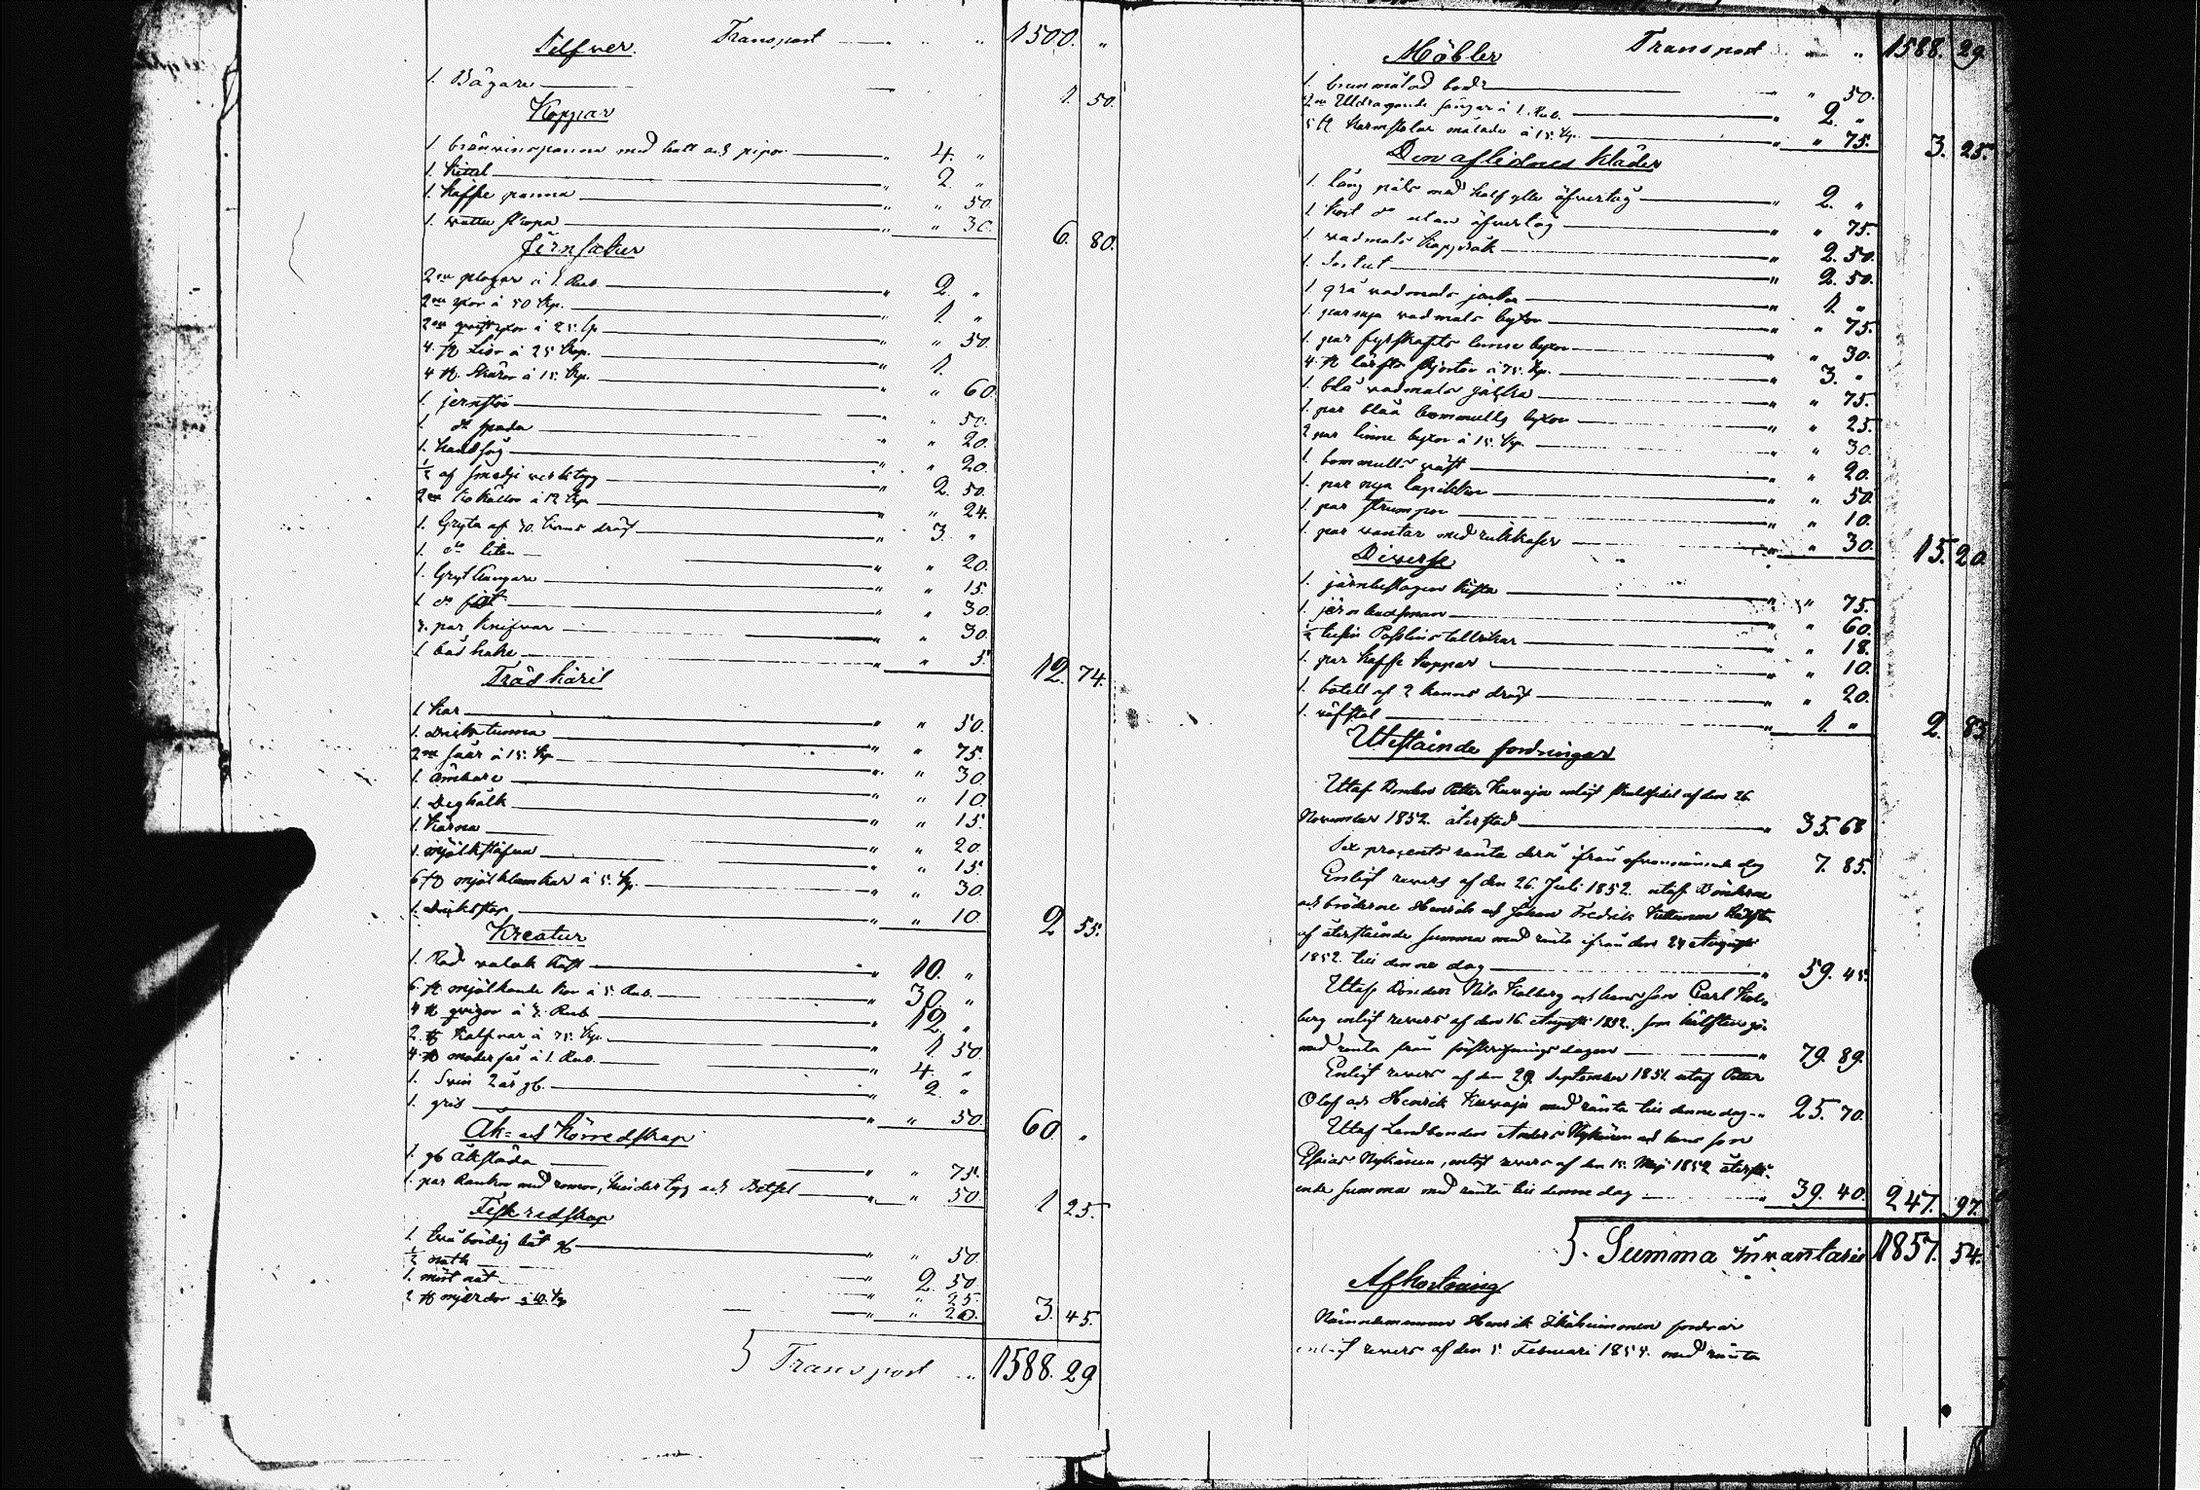 Silfver. Transport — " " 1500. "
1. Bägare — 1. 50.
Koppar
1. brännvinspanna med hatt och pipor — " 4. "
1. Kittel — " 2. "
1. Kaffe panna — " " 50.
1. vatten skopa — " " 30. 6. 80.
Järnsaker
2ne plogar à 1. Rub — " 2. "
2ne yxor à 50 Kp. — " 1. "
2ne à 25. Kp — " " 50.
4. st Liar à 25 Kop. — " 1.
4 st. Skäror à 15. Kp. — " " 60.
1. jernstör — " " 50.
1. do spada — " " 20.
1. handsåg — " " 20.
½ af smedje verktyg — " 2. 50.
2ne Ko à 12 Kp — " " 24.
1. Gryta af 30. kannors drägt — " 3. "
1. do liten — " " 20.
1. Gryt hängare — " " 15.
1 do fot — " " 30.
3. par Knifvar — " " 30.
1 båshake — " " 5. 12. 74.
Träd käril
1 Kar — " " 50.
1. Drickstunna — " " 75.
2ne såar à 15. Kp — " " 30.
1. Ämbare — " " 10.
1. Deghålk — " " 15.
1. Kärna — " " 20.
1. mjölkstäfva — " " 15.
6 st mjölkbunkar à 5. Kp. — " " 30.
1. Dricksstop — " " 10. 2. 55.
Kreatur
1. Röd valak häst — " 10. "
6. st mjölkande kor à 5. Rub. — " 30. "
4 st qvigor à 3. Rub — " 12. "
2. st Kalfvar à 75. Kp. — " 1. 50
4. st moderfår à 1. Rub. — " 4. "
1. Svin 2 år gb. — " 2. "
1. gris — " " 50. 60. "
Åk- och Körredskap
1. gb åksläda — " " 75.
1. par Rankor med remor, hindertyg och Betsel — " " 50. 1. 25.
Fiskredskap
1. tvåbördig båt gb — " " 50.
½ noth — " 2. 50.
1. mört nät — " " 25.
2 st mjerdor à 10. Kp — " " 20. 3. 45.
Transport " 1588. 29
Möbler Transport — " 1588. 29.
1. brunmålad bord — " " 50.
2ne Utdragande sängar à 1. Rub. — " 2. "
5 st Karmstolar målade à 15. Kp. — " " 75. 3. 25.
Den aflidnes kläder
1. lång päls med half ylle öfvertyg — " 2. "
1 kort do utan öfvertåg — " " 75.
1. vadmals kapprock — " 2. 50.
1. Surtut — " 2. 50.
1. grå vadmals jacka — " 1. "
1. par nya vadmals byxor — " " 75.
1. par fyrskafts linne byxor — " " 30.
4. st lärfts skjortor à 75. Kp. — " 3. "
1. blå vadmals jacka — " " 75.
1. par blåa bommulls byxor — " " 25.
2 par linne byxor à 15. Kp. — " " 30.
1. bommulls väst — " " 20.
1. par nya lapikkor — " " 50.
1. par strumpor — " " 10.
1. par vantar med rukkaser — " " 30. 15. 20
Diverse
1. järnbeslagen kista — " " 75.
1. järn besman — " " 60.
½ tusin Posslins tallrikar — " " 18.
1. par kaffe koppar — " " 10.
1. botell af 2 kannors drägt — " " 20.
1. väfstol — " 1. " 2. 83
Utestående fordringar
Utaf Bonden Petter Kurvaja enligt skuldsedel af den 26.
November 1852. återstod — " 35. 68
Sex procents ränta derå ifrån ofvannämnde dag 7. 85.
Enligt revers af den 26. Juli 1852. utaf Bönderne
och bröderne Henrik och Johan Fredrik Kettunen hälften
af återstående summa med ränta ifrån den 24 Augusti
1852. till denne dag — " 59. 45.
Utaf Bonden Nils Kolberg och hans son Carl Kol-
berg enligt revers af den 16. Augusti 1832. som hälften gör
med ränta från förskrifnings dagen — " 79. 89.
Enligt revers af den 29. September 1851. utaf Petter
Olof och Henrik Kurvaja med ränta till denne dag " 25. 70.
Utaf Landbonden Anders Nykänen och hans son
Esaias Nykänen, enligt revers af den 15. Maj 1852 återstå-
ende summa med ränta till denne dag — " 39. 40. 247. 97.
S. Summa Inventarii 1857. 54.
Afkortning
Nämndemannen Henrik fordrar
enligt revers af den 5. Februari 1854. med ränta